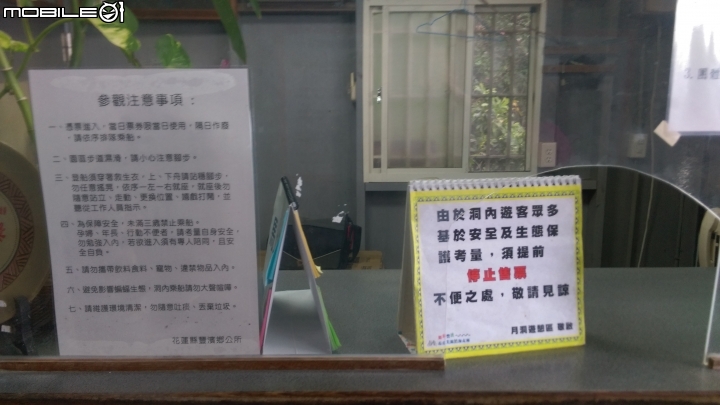 MOBILE01
參觀注意事項：
一、憑票進入，當日票券限當日使用，隔日作廢，
請依序排隊乘船。
二、園區步道濕滑，請小心注意腳步。
三、登船須穿著救生衣，上、下舟請站穩腳步，
勿任意搖晃，依序一左一右就座，就座後勿
隨意站立、走動、更換位置、嬉戲打鬧，並
聽從工作人員指示。
四、為保障安全，未滿三歲禁止乘船。
孕婦、年長、行動不便者，請考量自身安全，
勿勉強入內，若欲進入須有專人陪同，且安
全自負。
五、請勿攜帶飲料食料、寵物、違禁物品入內。
六、避免影響蝙蝠生態，洞內乘船請勿大聲喧嘩。
七、請維護環境清潔，勿隨意吐痰、丟棄垃圾。
花蓮縣豐濱鄉公所
由於洞內遊客眾多
基於安全及生態保
護考量，須提前
停止售票
不便之處，敬請見諒
月洞遊憩區 敬啟